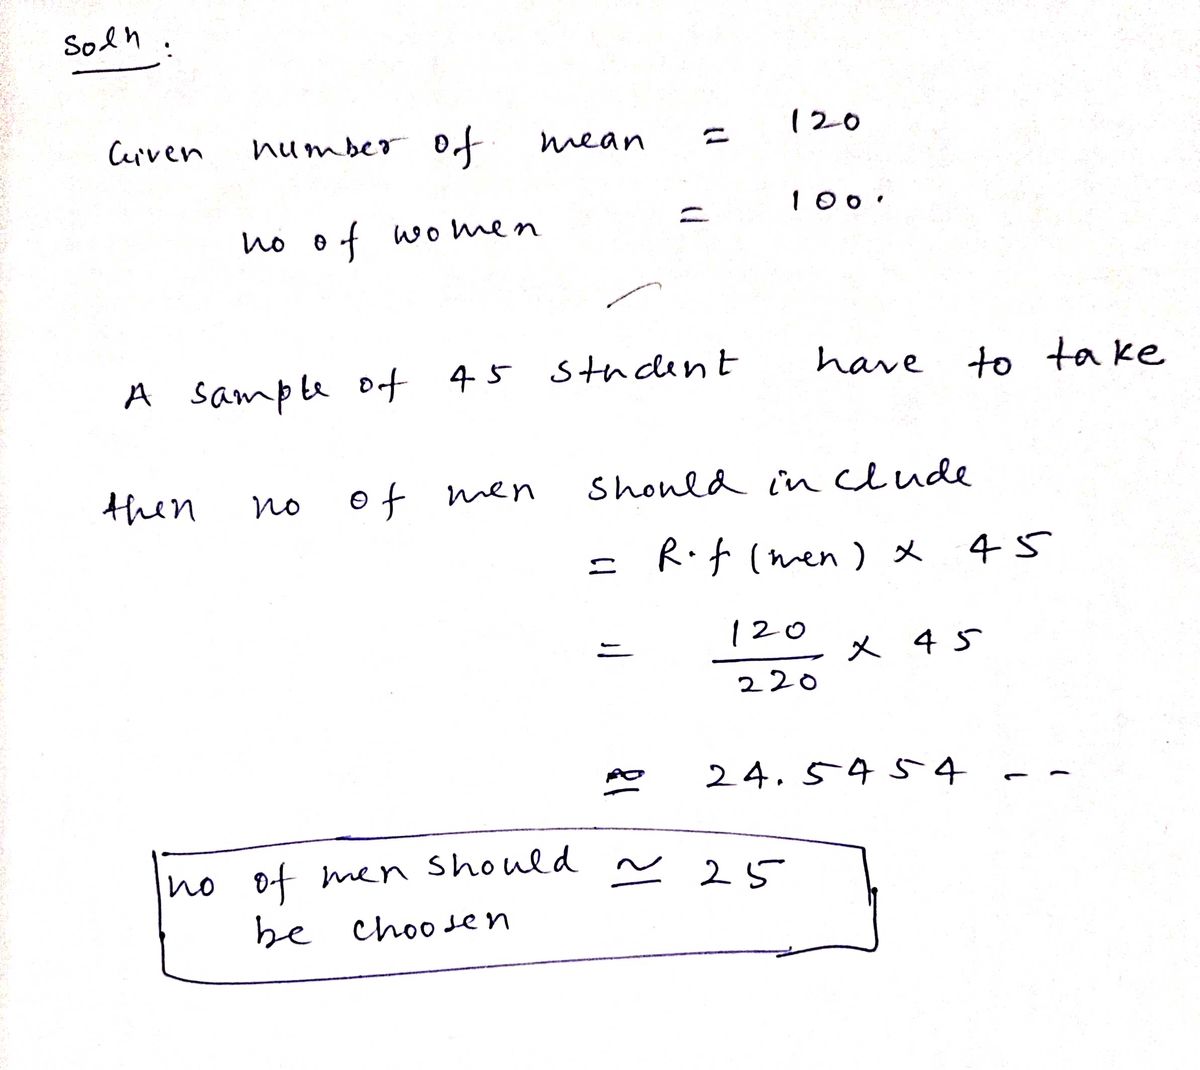 Soln :
Given number of mean = 120
no of women = 100.
A sample of 45 student have to take
then no of men should include
= R.f (men) × 45
= 120/220 × 45
≅ 24.5454 - -
no of men should ≃ 25
be choosen